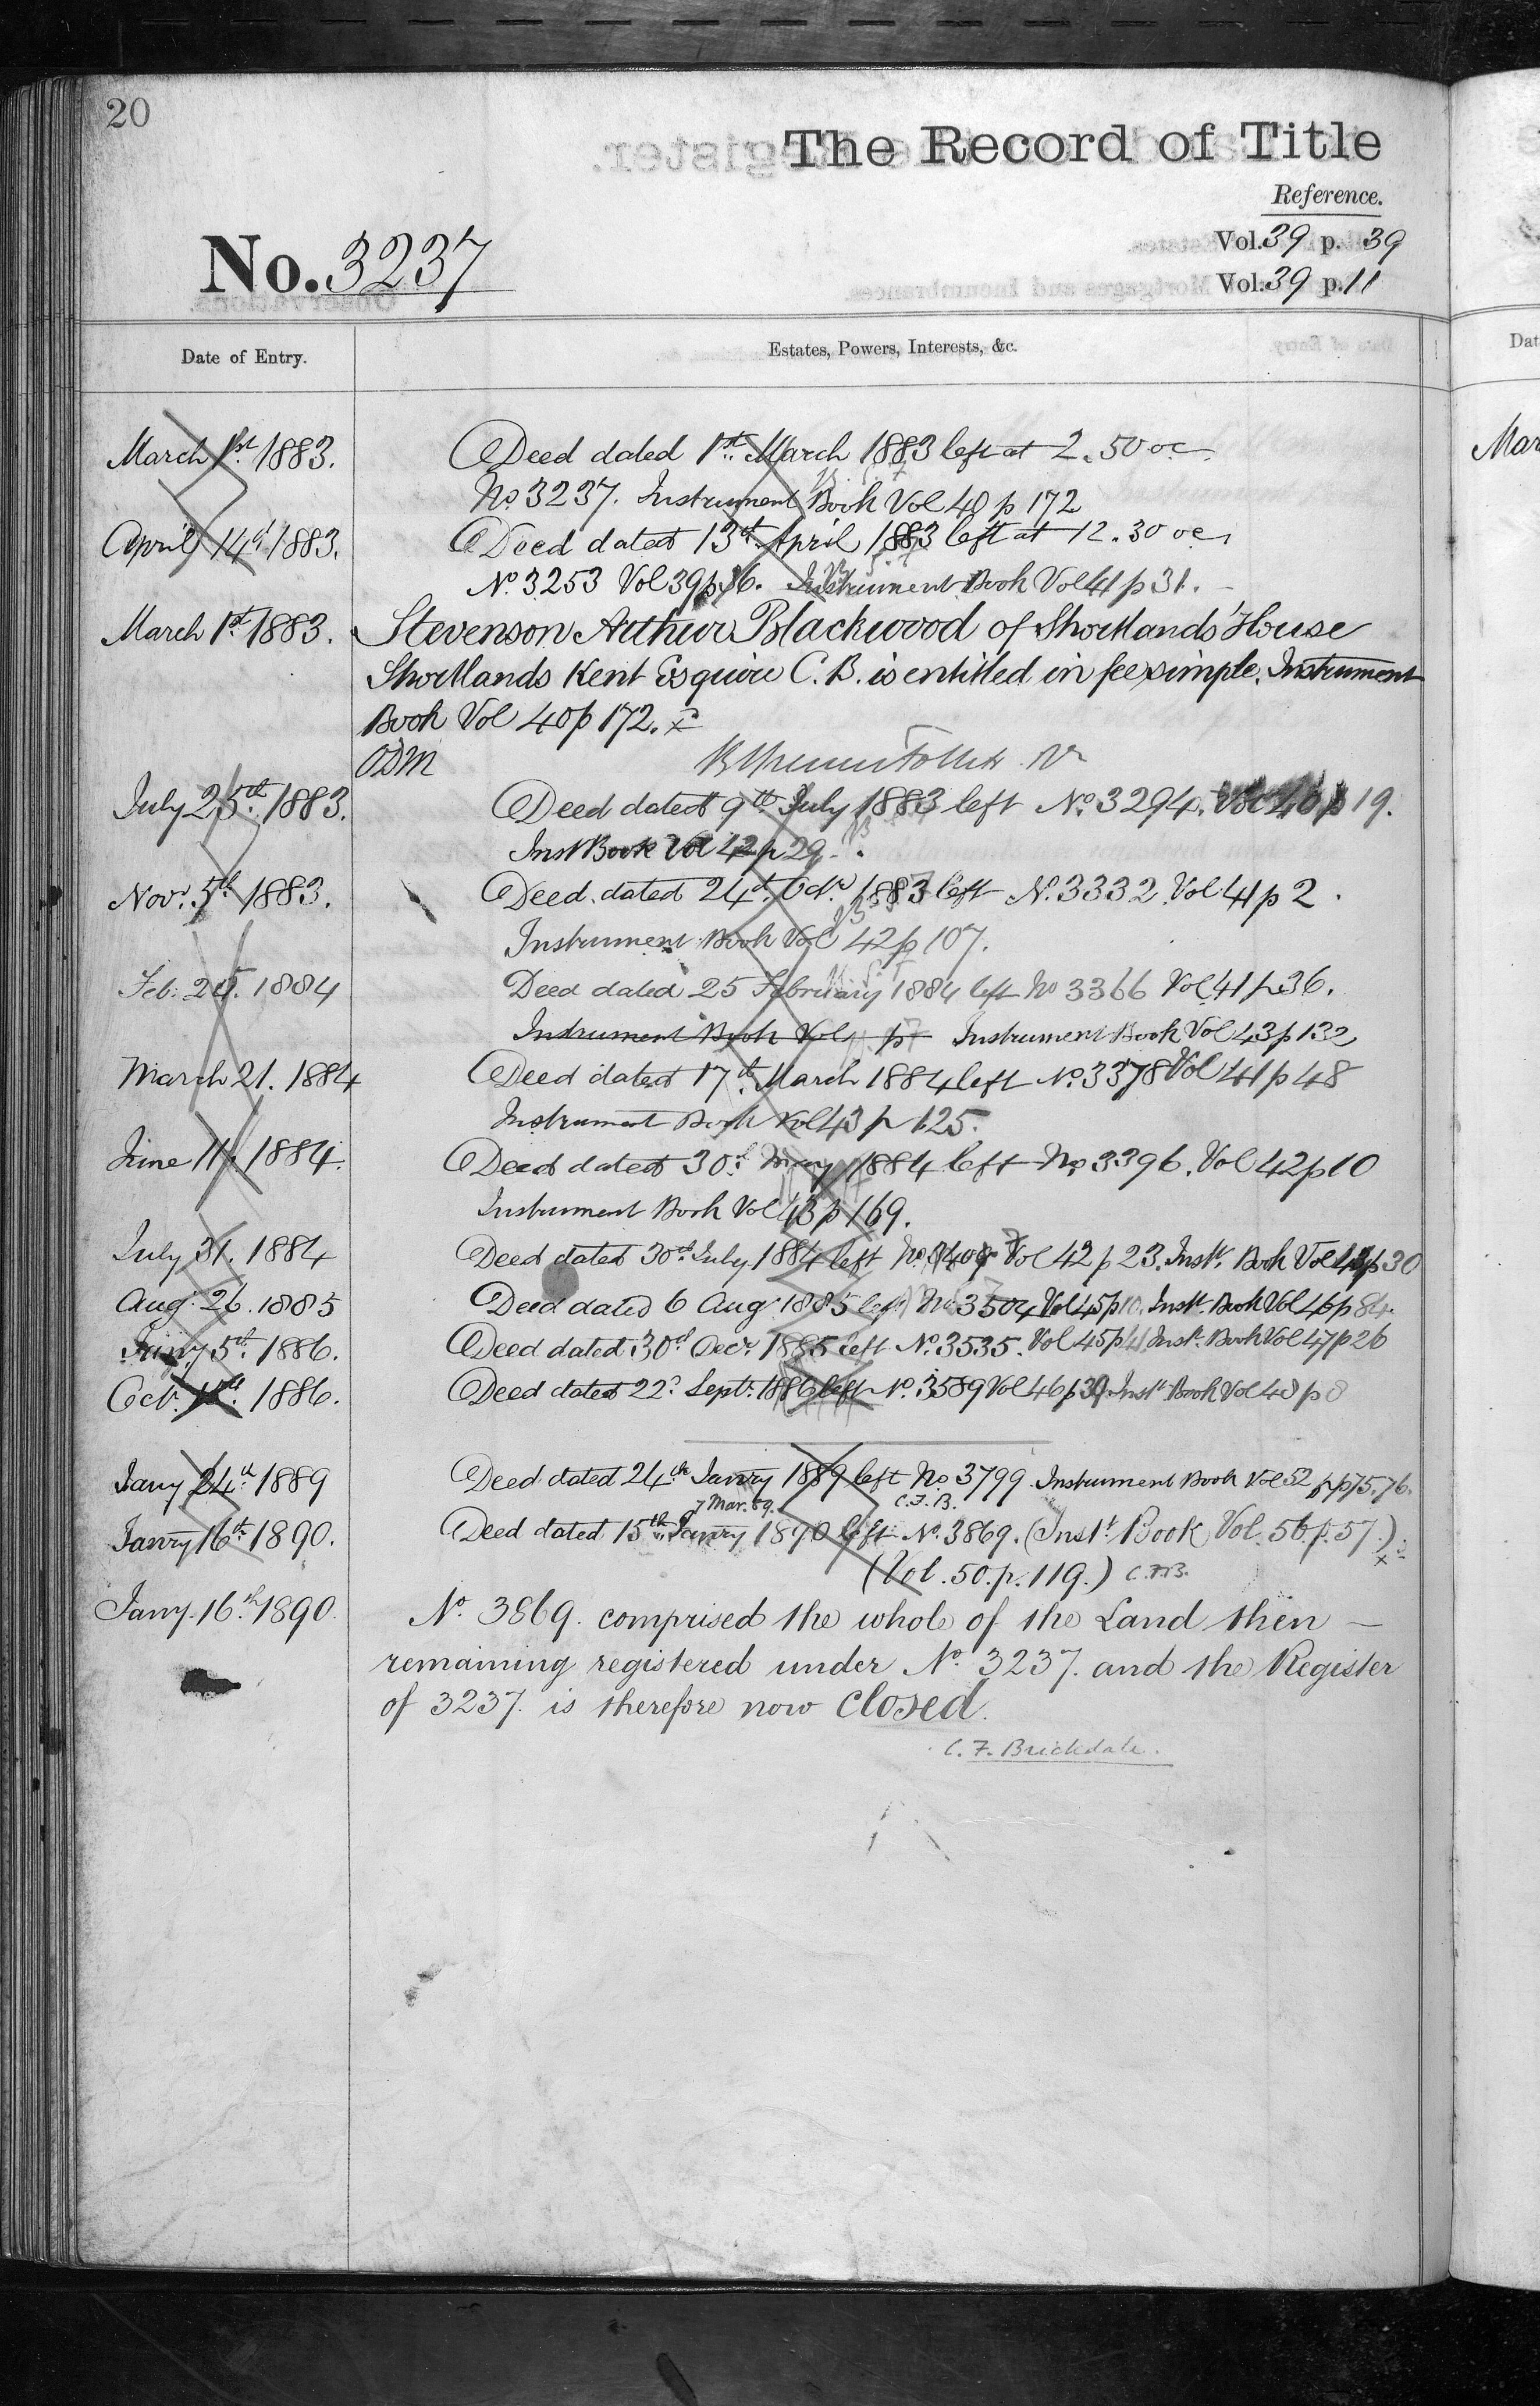 20
The Record of Title
Reference.
No. 3237
Vol. 39 p. 39
Vol. 39 p. 11
Date of Entry.
Estates, Powers, Interests, &c.
March 1st 1883.
Deed dated 1st March 1883 left at 2.50 oc
No 3237. Instrument Book Vol 40 p 172
April 14th 1883.
Deed dated 13th April 1883 left at 12.30 oc
No. 3253 Vol 39 p 36. Instrument Book Vol 41 p 31.
March 1st 1883.
Stevenson Arthur Blackwood of Shortlands House
Shortlands Kent Esquire C.B. is entitled in fee simple. Instrument
Book Vol 40 p 172.
ODM
July 25th 1883.
Deed dated 9th July 1883 left No. 3294. Vol 40 p 19.
Inst Book Vol 42 p 29.
Novr. 5th 1883.
Deed dated 24th Octr. 1883 left No. 3332 Vol 41 p 2.
Instrument Book Vol 42 p 107.
Feb: 25. 1884
Deed dated 25 February 1884 left No 3366 Vol 41 p 36.
Instrument Book Vol p Instrument Book Vol 43 p 132
March 21. 1884
Deed dated 17th March 1884 left No. 3378 Vol 41 p 48
Instrument Book Vol 43 p 125.
June 11. 1884.
Deed dated 30th May 1884 left No 3396. Vol 42 p 10
Instrument Book Vol 43 p 169.
July 31. 1884
Deed dated 30th July 1884 left No. Vol 42 p 23. Inst. Book Vol p 30
Aug: 26. 1885
Deed dated 6 Aug: 1885 left No 3504 Vol 45 p 10. Inst. Book Vol 46 p 84.
5th 1886.
Deed dated 30th Decr. 1885 left No. 3535. Vol 45 p 41 Inst. Book Vol 47 p 26
Oct. 1886.
Deed dated 22d Sept. 1886 left No. 3589 Vol 46 p 39. Inst. Book Vol 48 p 8
Jany 24th 1889
Deed dated 24th Janry 1889 left No 3799. Instrument Book Vol 52 pp 75, 76.
7 Mar. 89. C.F.B.
Janry 16th 1890.
Deed dated 15th Janry 1890 left No. 3869. (Instt. Book Vol. 56. p. 57.)
(Vol. 50. p. 119.) C.F.B.
Jany. 16th 1890.
No. 3869. comprised the whole of the Land then —
remaining registered under No. 3237. and the Register
of 3237. is therefore now closed.
C. F. Brickdale.
Dat
Mar